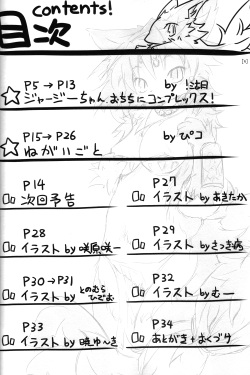 contents!
目次
P5→P13
ジャージーちゃん おちちにコンプレックス!
P15→P26 by ぴコ
ねがいごと
P14
次回予告
P27
イラスト by あきたか
P28
イラスト by 咲原咲一
P29
イラスト by さっき病
P30→P31
イラスト by とのむらひでお
P32
イラスト by むー
P33
イラスト by 暁ゆ〜き
P34
あとがき+おくづけ